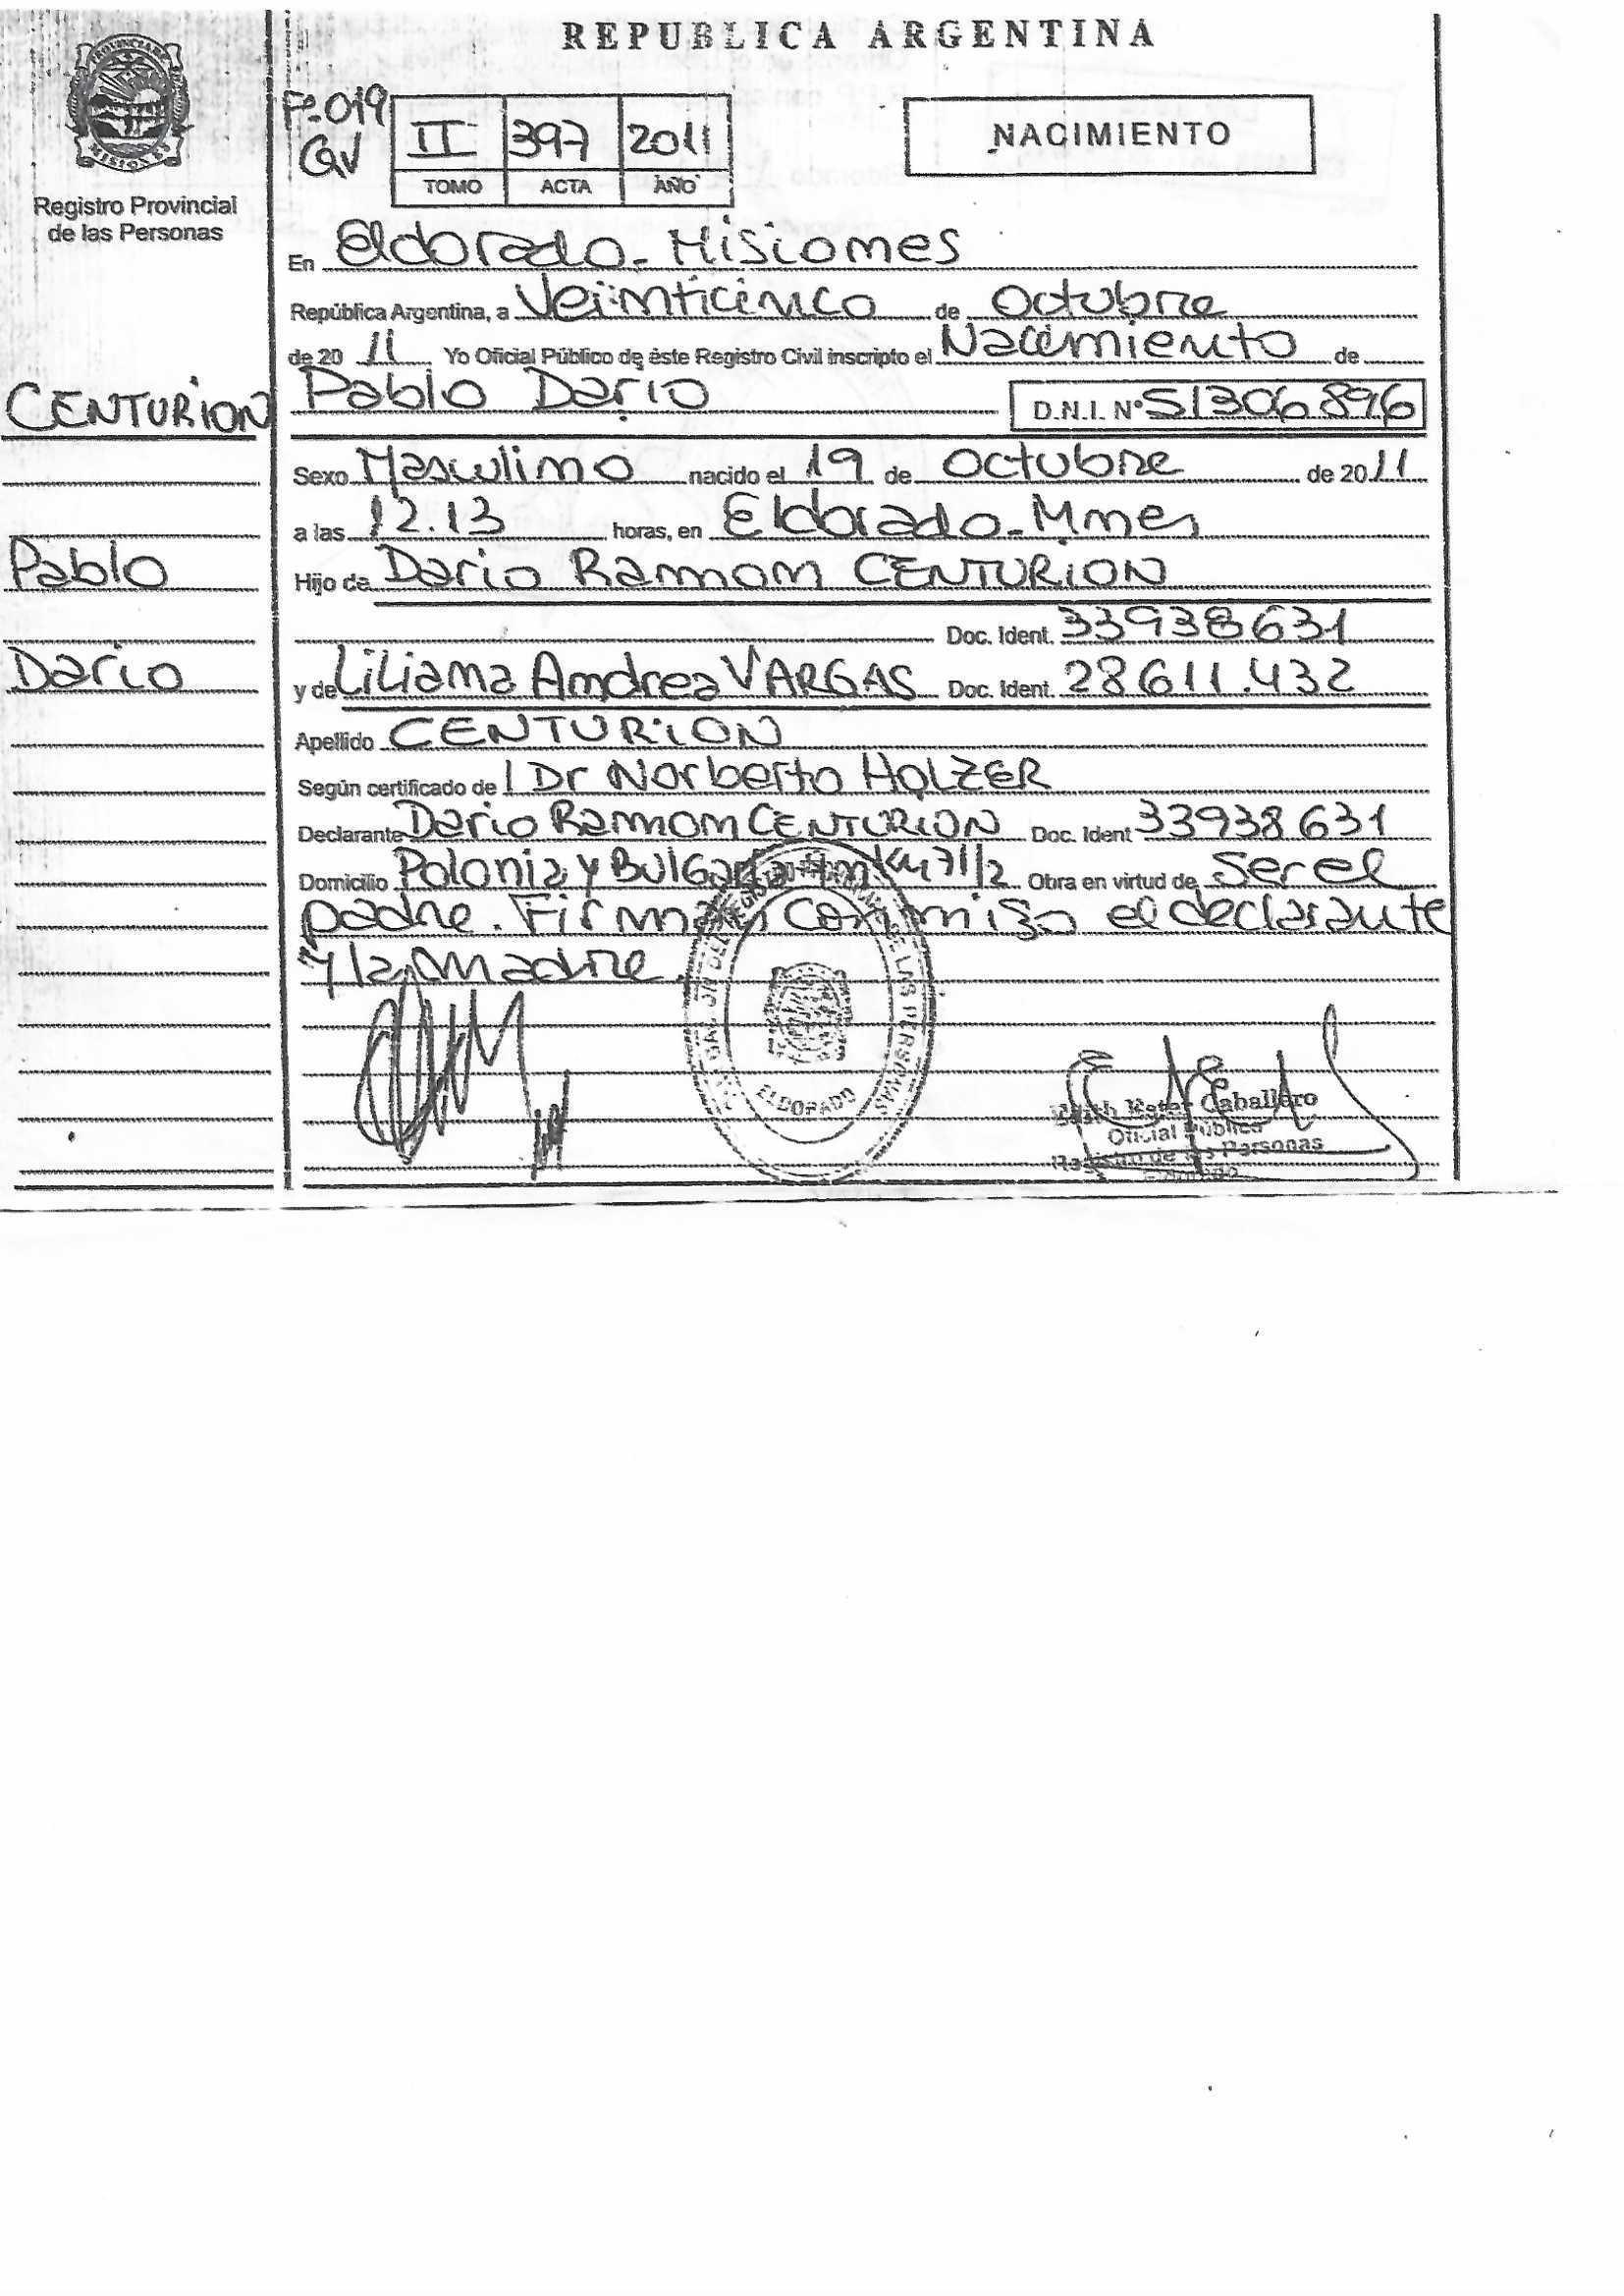 REPUBLICA ARGENTINA
PROVINCIA DE
MISIONES
Registro Provincial
de las Personas
P-019
GV
II 397 2011
TOMO ACTA AÑO
NACIMIENTO
En Eldorado - Misiones
República Argentina, a Veinticinco de Octubre
de 20 11 Yo Oficial Público de éste Registro Civil inscripto el Nacimiento de
CENTURION Pablo Dario D.N.I. Nº 51306896
Sexo Masculino nacido el 19 de Octubre de 2011
a las 12.13 horas, en Eldorado - Mnes
Pablo
Hijo de Dario Ramon CENTURION
Doc. Ident. 33938631
Dario
y de Liliana Andrea VARGAS Doc. Ident. 28611.432
Apellido CENTURION
Según certificado de l Dr Norberto HOLZER
Declarante Dario Ramon CENTURION Doc. Ident 33938631
Domicilio Polonia y Bulgaria Km 7 1/2 Obra en virtud de Ser el
padre. Firman conmigo el declarante
y la madre.
DE LAS PERSONAS
ELDORADO
Edith Caballero
Oficial Pública
Registro de las Personas